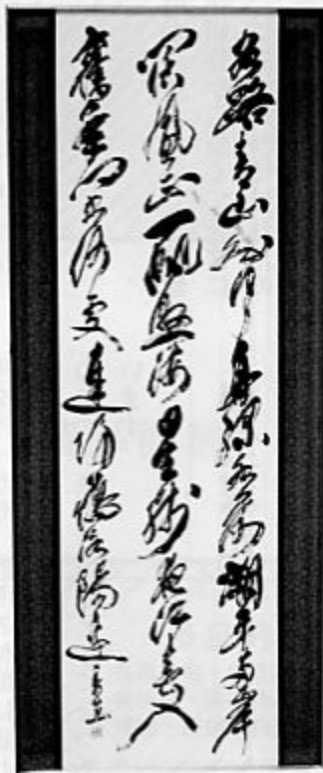 客路青山外行舟綠水前潮平兩岸
闊風正一帆懸海日生殘夜江春入
舊年鄉書何處達歸雁洛陽邊